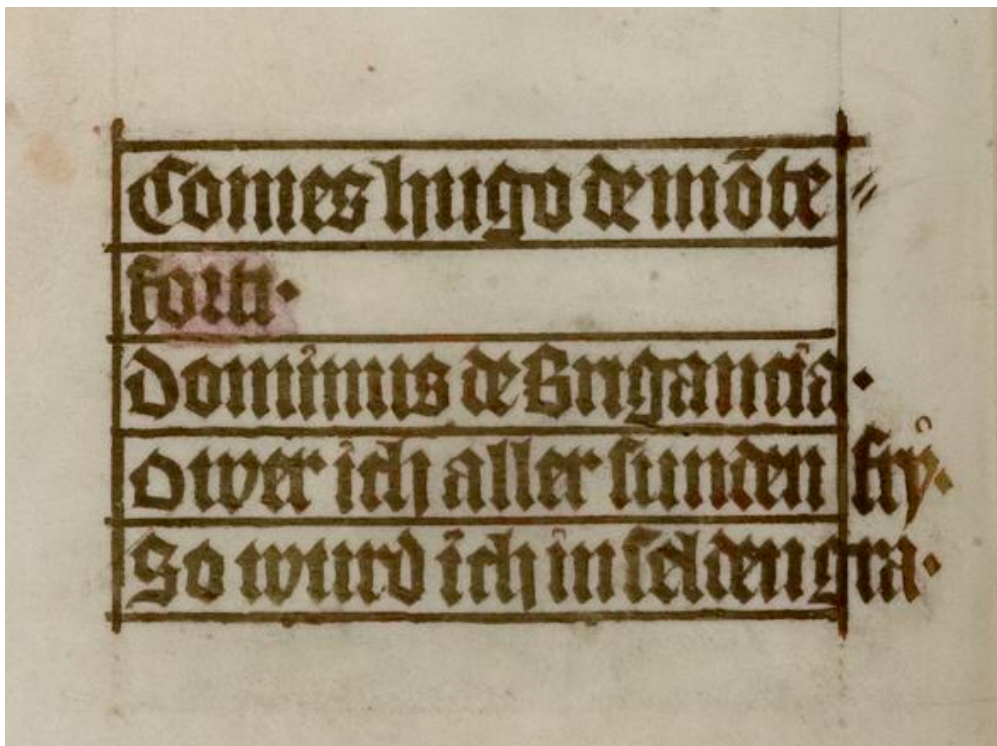 Comes hugo de mõte〃
forti·
Dominus de Brigancia·
O wer ich aller sunden frÿ·
So wurd ich in selden gra·